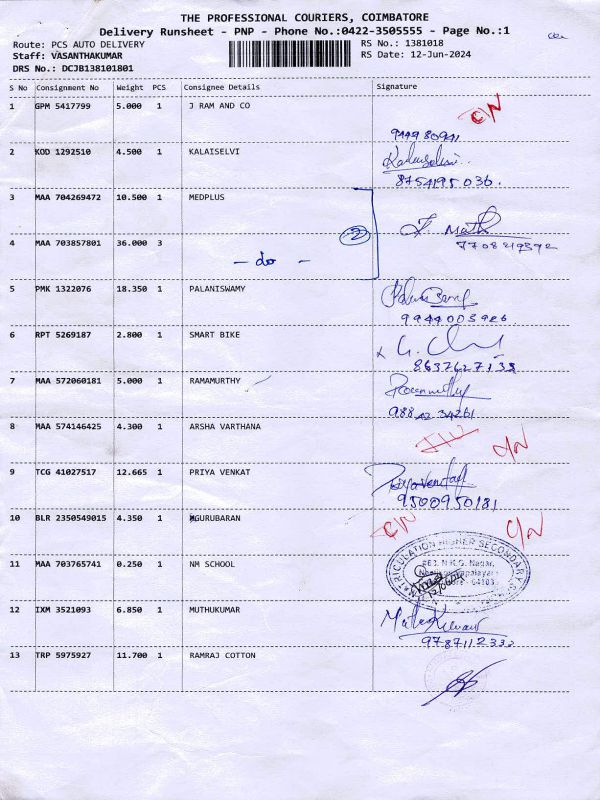 THE PROFESSIONAL COURIERS, COIMBATORE
Delivery Runsheet - PNP - Phone No.:0422-3505555 - Page No.:1
Route: PCS AUTO DELIVERY RS No.: 1381018
Staff: VASANTHAKUMAR RS Date: 12-Jun-2024
DRS No.: DCJB138101801
S No Consignment No Weight PCS Consignee Details Signature
1 GPM 5417799 5.000 1 J RAM AND CO C/N
2 KOD 1292510 4.500 1 KALAISELVI Kalaiselvi
8754195036.
3 MAA 704269472 10.500 1 MEDPLUS
4 MAA 703857801 36.000 3 2
- do -
5 PMK 1322076 18.350 1 PALANISWAMY
9944003926
6 RPT 5269187 2.800 1 SMART BIKE
8637627133
7 MAA 572060181 5.000 1 RAMAMURTHY
8 MAA 574146425 4.300 1 ARSHA VARTHANA C/N
9 TCG 41027517 12.665 1 PRIYA VENKAT
9500950181
10 BLR 2350549015 4.350 1 MGURUBARAN C/N C/N
11 MAA 703765741 0.250 1 NM SCHOOL MATRICULATION HIGHER SECONDARY
12 IXM 3521093 6.850 1 MUTHUKUMAR
9787112333
13 TRP 5975927 11.700 1 RAMRAJ COTTON